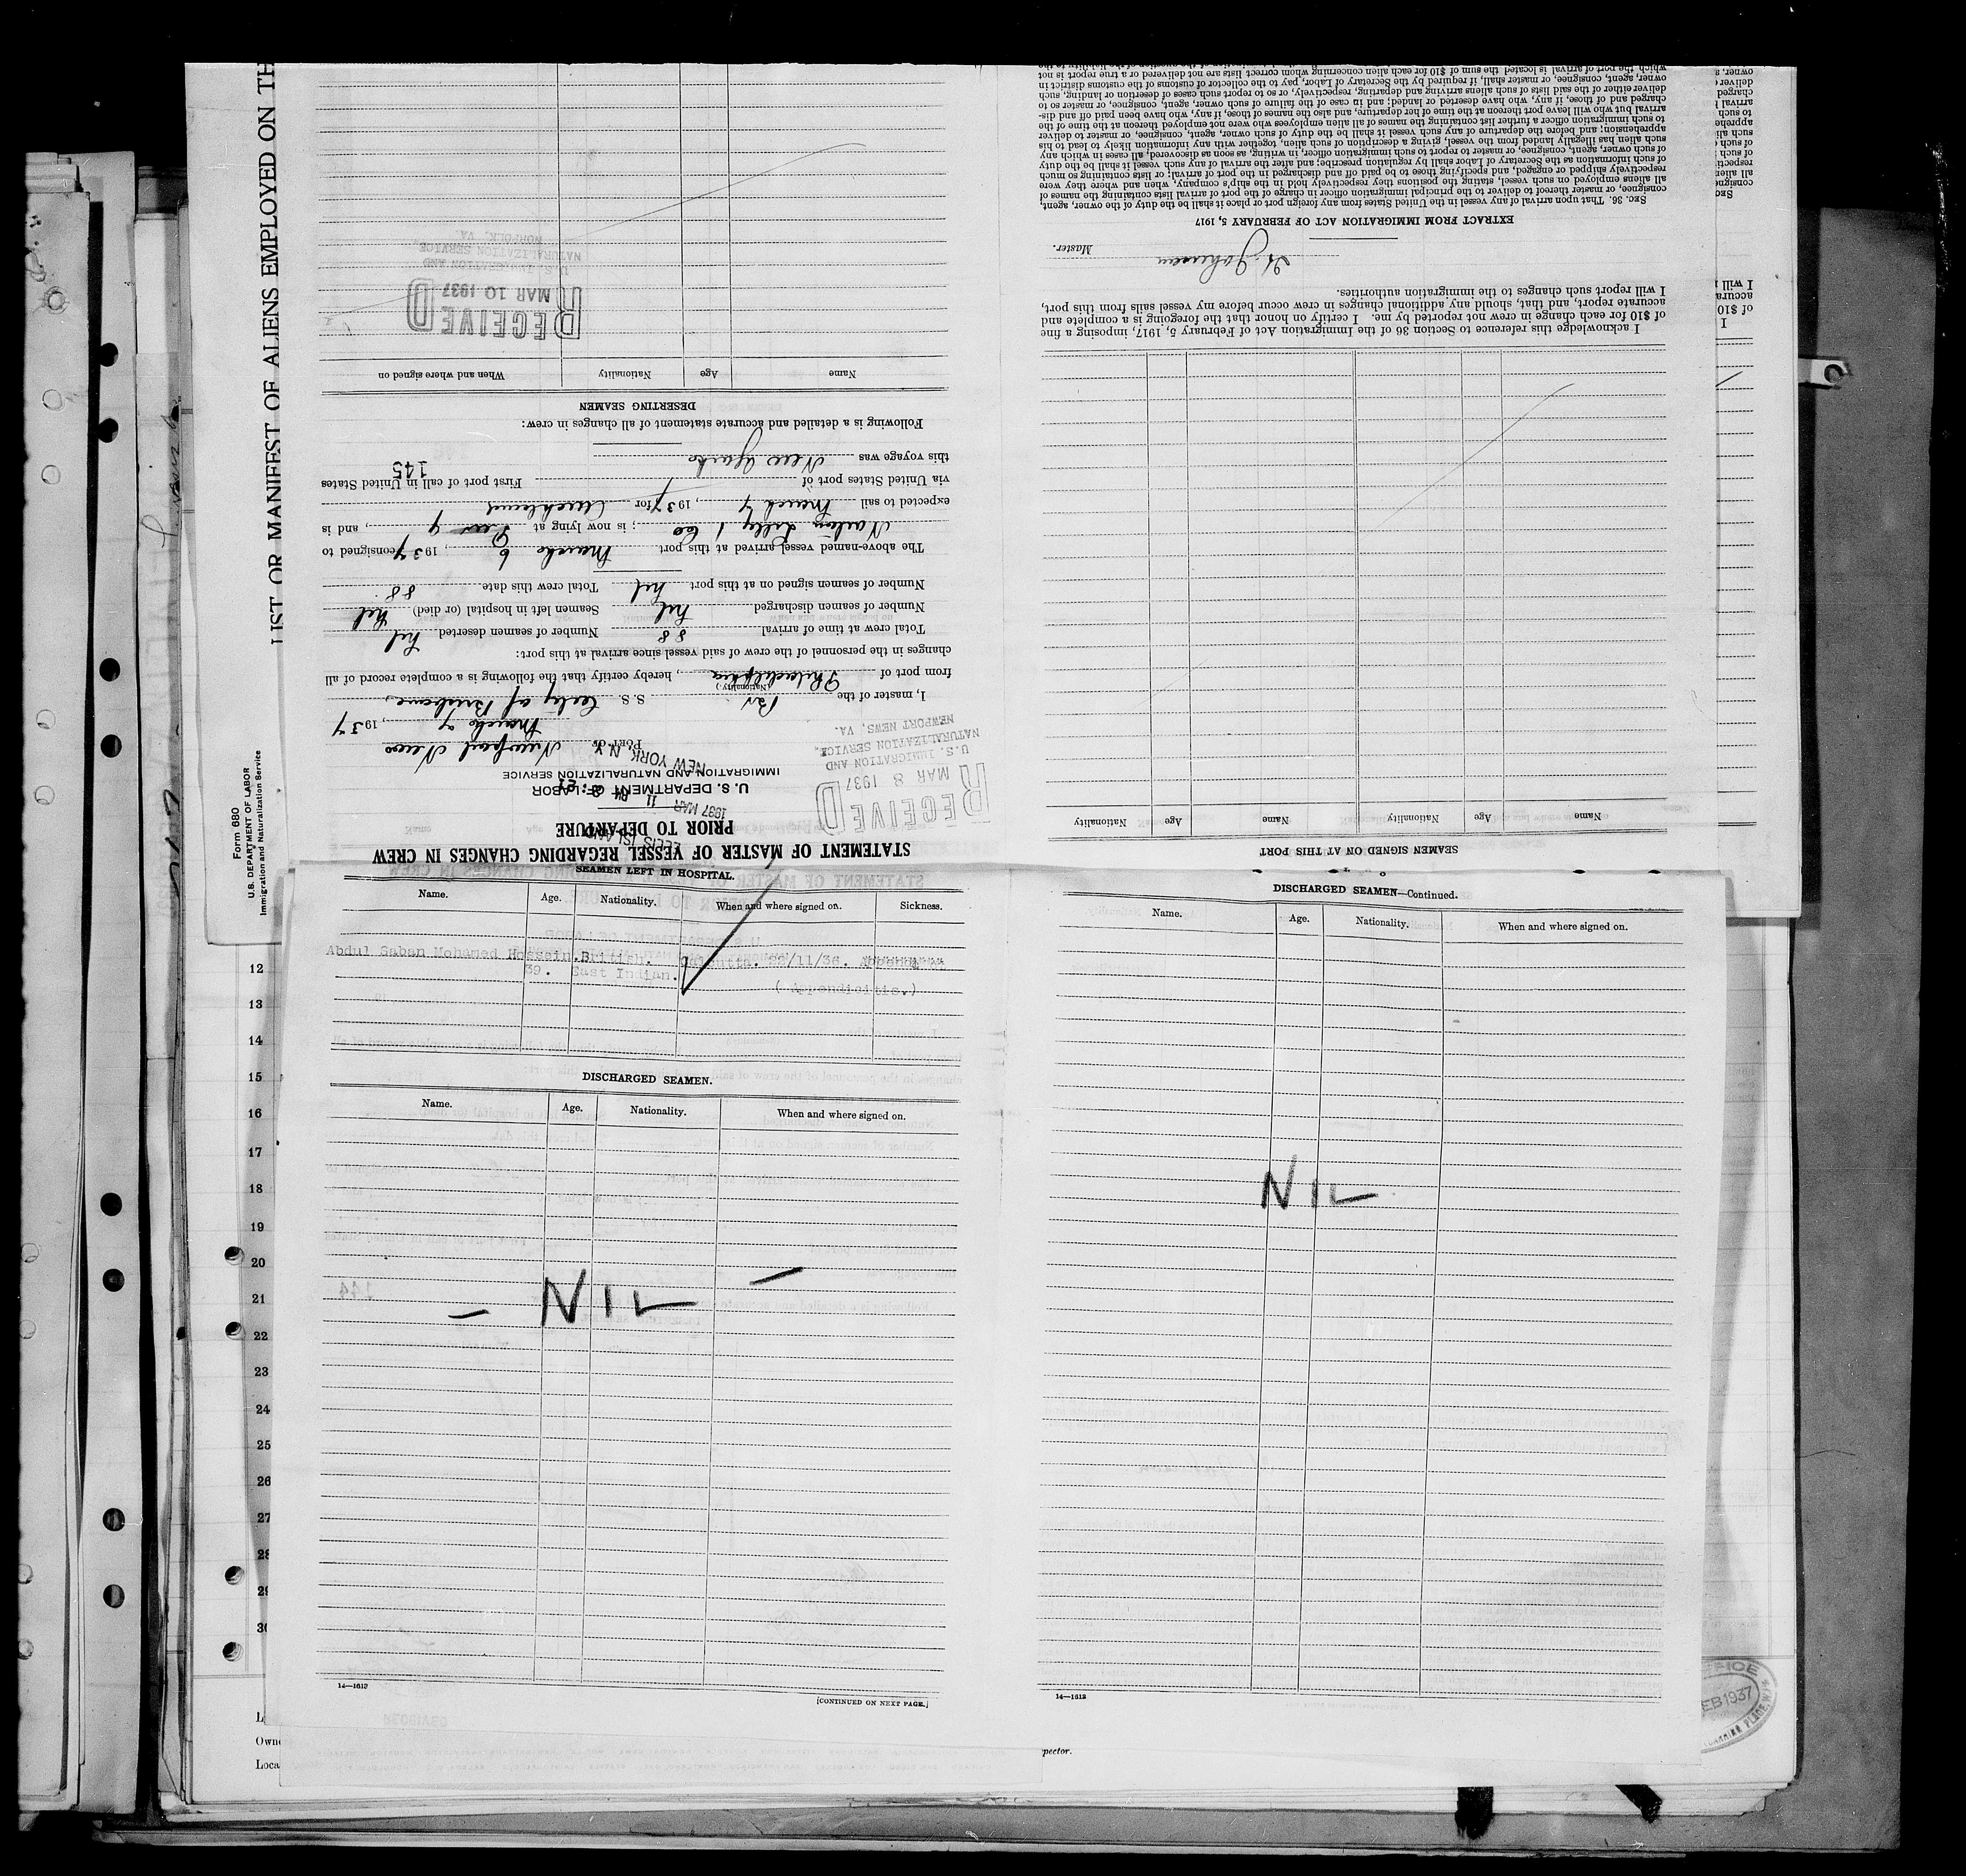 LIST OR MANIFEST OF ALIENS EMPLOYED ON TH
Form 680
U.S. DEPARTMENT OF LABOR
Immigration and Naturalization Service
STATEMENT OF MASTER OF VESSEL REGARDING CHANGES IN CREW
PRIOR TO DEPARTURE
ELLIS ISLAND
1937 MAR 11 PM
U. S. DEPARTMENT OF LABOR
IMMIGRATION AND NATURALIZATION SERVICE
NEW YORK, N.Y.
RECEIVED
MAR 8 1937
U. S. IMMIGRATION AND
NATURALIZATION SERVICE
NEWPORT NEWS, VA.
Port of Newport News
March 7, 1937
I, master of the Br S.S. City of Brisbane,
(Nationality)
from port of Philadelphia, hereby certify that the following is a complete record of all
changes in the personnel of the crew of said vessel since arrival at this port:
Total crew at time of arrival 88 Number of seamen deserted nil
Number of seamen discharged nil Seamen left in hospital (or died) nil
Number of seamen signed on at this port nil Total crew this date 88
The above-named vessel arrived at this port March 6, 1937 consigned to
Norton Lilly & Co; is now lying at, and is
expected to sail March 7, 1937 for Auckland
via United States port of First port of call in United States
this voyage was New York
145
Following is a detailed and accurate statement of all changes in crew:
DESERTING SEAMEN
Name Age Nationality When and where signed on
RECEIVED
MAR 10 1937
U. S. IMMIGRATION AND
NATURALIZATION SERVICE
NORFOLK, VA.
SEAMEN SIGNED ON AT THIS PORT
Name Age Nationality Name Age Nationality
I acknowledge this reference to Section 36 of the Immigration Act of February 5, 1917, imposing a fine
of $10 for each change in crew not reported by me. I certify on honor that the foregoing is a complete and
accurate report, and that, should any additional changes in crew occur before my vessel sails from this port,
I will report such changes to the immigration authorities.
Master.
EXTRACT FROM IMMIGRATION ACT OF FEBRUARY 5, 1917
SEC. 36. That upon arrival of any vessel in the United States from any foreign port or place it shall be the duty of the owner, agent,
consignee, or master thereof to deliver to the principal immigration officer in charge of the port of arrival lists containing the names of
all aliens employed on such vessel, stating the positions they respectively hold in the ship's company, when and where they were
respectively shipped or engaged, and specifying those to be paid off and discharged in the port of arrival; or lists containing so much
of such information as the Secretary of Labor shall by regulation prescribe; and after the arrival of any such vessel it shall be the duty
of such owner, agent, consignee, or master to report to such immigration officer, in writing, as soon as discovered, all cases in which any
such alien has illegally landed from the vessel, giving a description of such alien, together with any information likely to lead to his
apprehension; and before the departure of any such vessel it shall be the duty of such owner, agent, consignee, or master to deliver
to such immigration officer a further list containing the names of all alien employees who were not employed thereon at the time of the
arrival but who will leave port thereon at the time of her departure, and also the names of those, if any, who have been paid off and dis-
charged and of those, if any, who have deserted or landed; and in case of the failure of such owner, agent, consignee, or master so to
deliver either of the said lists of such aliens arriving and departing, respectively, or so to report such cases of desertion or landing, such
owner, agent, consignee, or master shall, if required by the Secretary of Labor, pay to the collector of customs of the customs district in
which the port of arrival is located the sum of $10 for each alien concerning whom correct lists are not delivered or a true report is not
SEAMEN LEFT IN HOSPITAL.
Name. Age. Nationality. When and where signed on. Sickness.
Abdul Gaban Mohamed Hossein. British. Calcutta. 22/11/36.
39. East Indian.
( Appendicitis.)
DISCHARGED SEAMEN.
Name. Age. Nationality. When and where signed on.
— NIL —
14—1613
[CONTINUED ON NEXT PAGE.]
DISCHARGED SEAMEN—Continued.
Name. Age. Nationality. When and where signed on.
NIL
14—1613
12
13
14
15
16
17
18
19
20
21
22
23
24
25
26
27
28
29
30
144
Owne
Loca
pector.